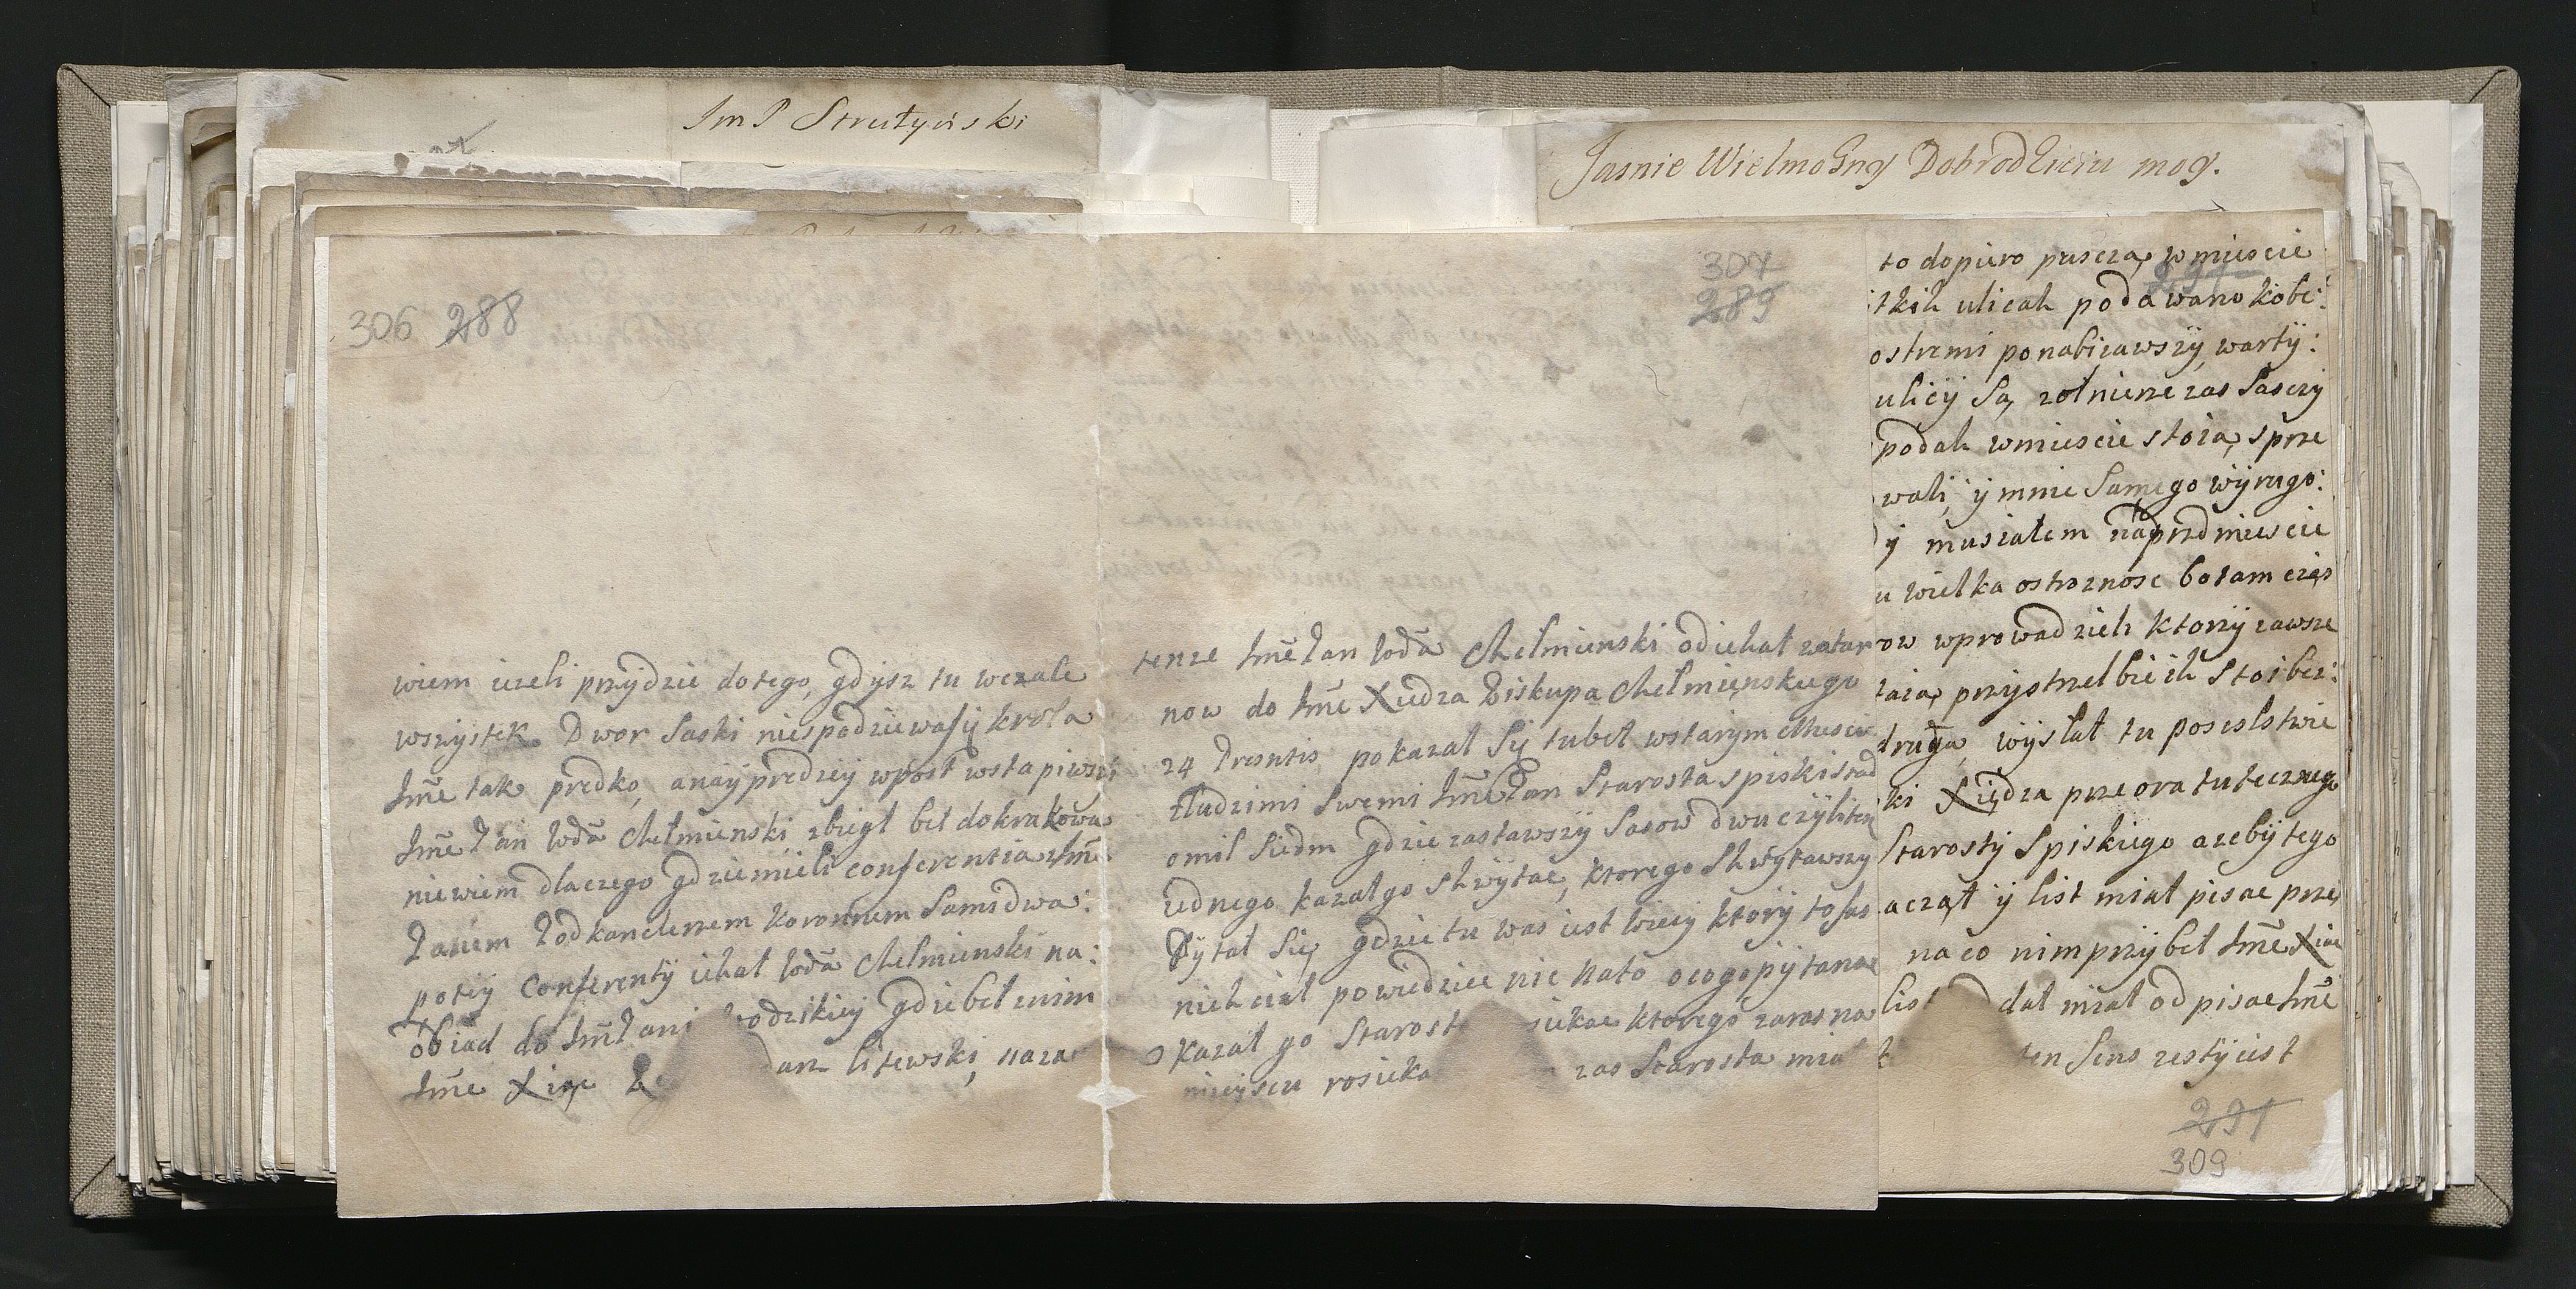 Im P Strutyński
306 288
wiem ieżeli przÿdzie dotego, gdÿsz tu wczale
wszÿstek Dwor Saski niespodziewasÿ krola
Jmę tak prędko, anaÿprędzeÿ wpost wstapiwszi
Jmę Pan Wdã Chełmienski zbiegł beł dokrakowa
niewiem dlaczego gdziemieli conferentia zJmę
Panem Podkanclerzem koronnem Samidwa:
poteÿ Conferentÿ iehał Wdã Chełmienski na:
Obiad do Jmę Pani gdziebeł znim
Jmę Xiąże litewski, naza
Jasnie Wielmożny Dobrodzieiu moy.
307
289
tenze Jmę Pan Wdã Chełmienski odiehał zatar
now do Jmę Xiedza Biskupa Chełmienskiego
24 Presentis pokazał Sÿ tubeł wstarÿm Miescie
zludzimi Swemi Jmę Pan Starosta spiski stad
omil Siedm gdzie zastawszÿ Sasow dwu czÿliteż
iednego kazałgo shwÿtać, ktorego Shwÿtawszÿ
Pÿtał Się gdzie tu was iest wieceÿ ktorÿ tosas
niehciał powiedziec nic nato ocogopÿtano
kazał go Starosta siekac ktorego zaras na
mieÿscu rosieka zas Starosta miał
to dopiero pusczą, wmiescie
tkih ulicah podawano kobe:
ostremi ponabiiawszÿ wartÿ:
ulicÿ Są, zołnierze zas Sasczÿ
podah wmiescie stoią, sprze
wali, ÿ mnie Samego wÿrugo:
ÿ musiałem naprzdmiescie
u wielka ostroznosc botam czės
ow wprowadzieli ktorzÿ zawsze
taią, przÿstrzelbieih Stoi bez:
drugą, wÿsłał tu posesłstwie
ki Xiędza przeora tutecznego
Starostÿ Spiskiego azebÿtego
aczął ÿ list miał pisac prze
na co nimprzÿbeł Jmę Xiąe
list dał miał odpisac Jmę
ten Sens zestÿ iest
291
309